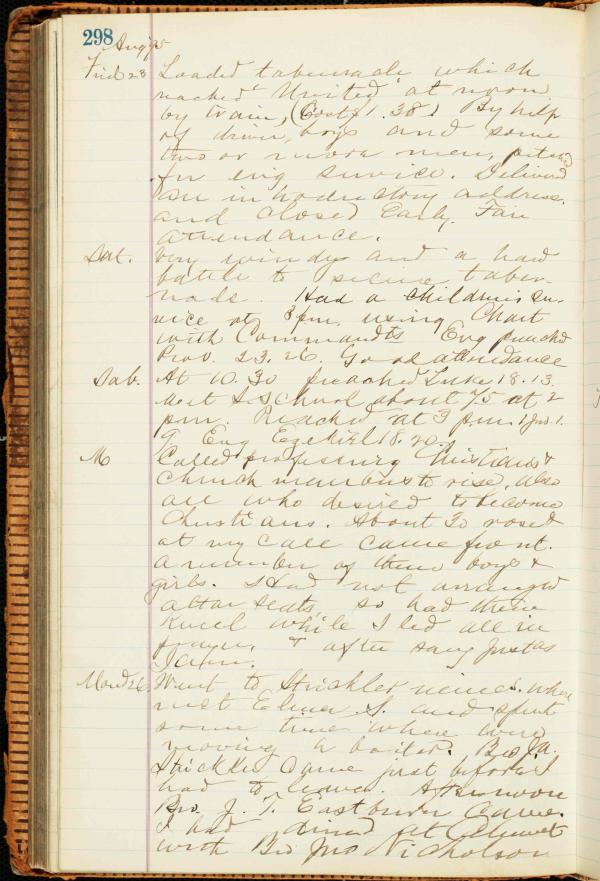 298 Aug 95
Frid 23 Loaded tabernacle which
reached United at noon
by train, (Cost $1.38) By help
of driver, boys and some
two or more men, pitched
for evg service. Delivered
an introductory address,
and closed Early. Fair
attendance.
Sat. Very windy and a hard
battle to secure taber-
nacle. Had a children's ser-
vice at 3 pm using Chart
with Commandts Evg preached
Prov. 23.26. Good attendance
Sab. At 10.30 preached Luke 18.13.
Met S. School about 75 at 2
pm. Preached at 3 pm. 1 Jno. 1.
9 Evg Ezekiel 18.20.
M Called professing Christians &
Church members to rise, also
all who desired to become
Christians. About 30 rose &
at my call came front.
a number of them boys &
girls. I had not arranged
altar seats, so had them
Kneel while I led all in
prayer, & after sang Just as
I am.
Mond 26 Went to Strickler mines. where
met Elmer S. and spent
some time where were
moving a boiler. Bro Ja.
Strickler came just before I
had to leave. Afternoon
Bro. J. T. Eastburn came.
I had dined at
with Bro Jno Nicholson